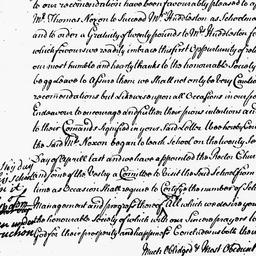 to our recomendation have been favourably pleased to
Mr. Thomas Noxon to Succeed Mr. Huddleston as Schoolma
and to order a Gratuity of twenty pounds to Mrs. Huddleston fo
which favours we readily embrace this first Opportunity of retu
our most humble and hearty thanks to the honourable Society
beg leave to assure them we shall not only be very Cautious
recomendations but siderous upon all Occasions in our po
Endeavour to encourage and further their pious intentions an
to their Comands signified in your said letter
the said Mr. Noxon began to teach School on the twenty
Day of Aprill last and we have appointed the Rector Chur
and some of the Vestry a Comittee to visit the said School from
time as Occasion shall require to Certifie the number of Scho
Management and progress thereof all which
the honourable Society of which with our Sincere prayers to
God for their prosperity and happiness Concludes us
Much Obliged & Most Obedient
this day
school
in
under
ruction